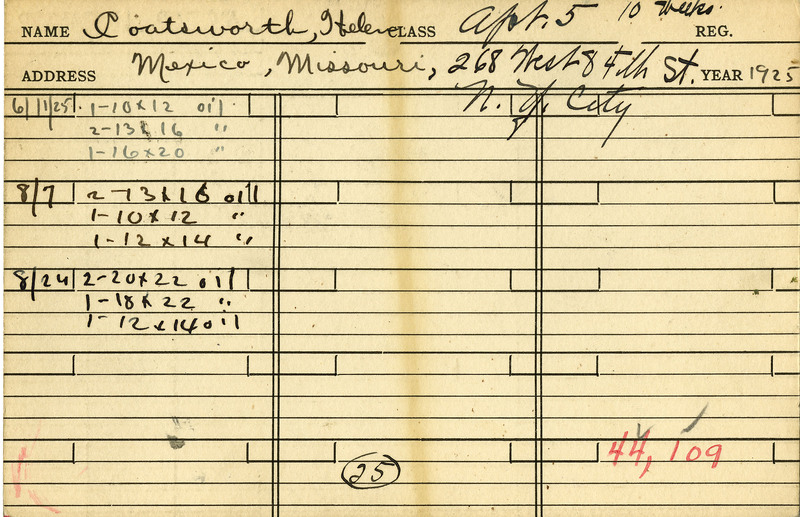 NAME Coatsworth, Helen CLASS Apt. 5 10 Weeks. REG.
ADDRESS Mexico, Missouri, 268 West 84th St. YEAR 1925
N. Y. City
6/11/25 1-10x12 oil
2-13x16 "
1-16x20 "
8/7 2-13x16 oil
1-10x12 "
1-12x14 "
8/24 2-20x22 oil
1-18x22 "
1-12x14 oil
44, 109
25